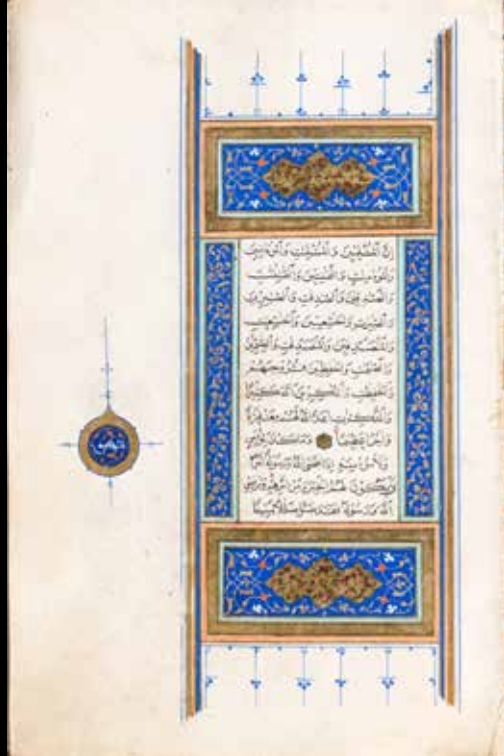 إِنَّ ٱلْمُسْلِمِينَ وَٱلْمُسْلِمَٰتِ وَٱلْمُؤْمِنِينَ
وَٱلْمُؤْمِنَٰتِ وَٱلْقَٰنِتِينَ وَٱلْقَٰنِتَٰتِ
وَٱلصَّٰدِقِينَ وَٱلصَّٰدِقَٰتِ وَٱلصَّٰبِرِينَ
وَٱلصَّٰبِرَٰتِ وَٱلْخَٰشِعِينَ وَٱلْخَٰشِعَٰتِ
وَٱلْمُتَصَدِّقِينَ وَٱلْمُتَصَدِّقَٰتِ وَٱلصَّٰئِمِينَ
وَٱلصَّٰئِمَٰتِ وَٱلْحَٰفِظِينَ فُرُوجَهُمْ
وَٱلْحَٰفِظَٰتِ وَٱلذَّٰكِرِينَ ٱللَّهَ كَثِيرًا
وَٱلذَّٰكِرَٰتِ أَعَدَّ ٱللَّهُ لَهُمْ مَغْفِرَةً
وَأَجْرًا عَظِيمًا وَمَا كَانَ لِمُؤْمِنٍ
وَلَا مُؤْمِنَةٍ إِذَا قَضَى ٱللَّهُ وَرَسُولُهُ أَمْرًا
أَنْ يَكُونَ لَهُمُ ٱلْخِيَرَةُ مِنْ أَمْرِهِمْ وَمَنْ يَعْصِ
ٱللَّهَ وَرَسُولَهُ فَقَدْ ضَلَّ ضَلَٰلًا مُبِينًا